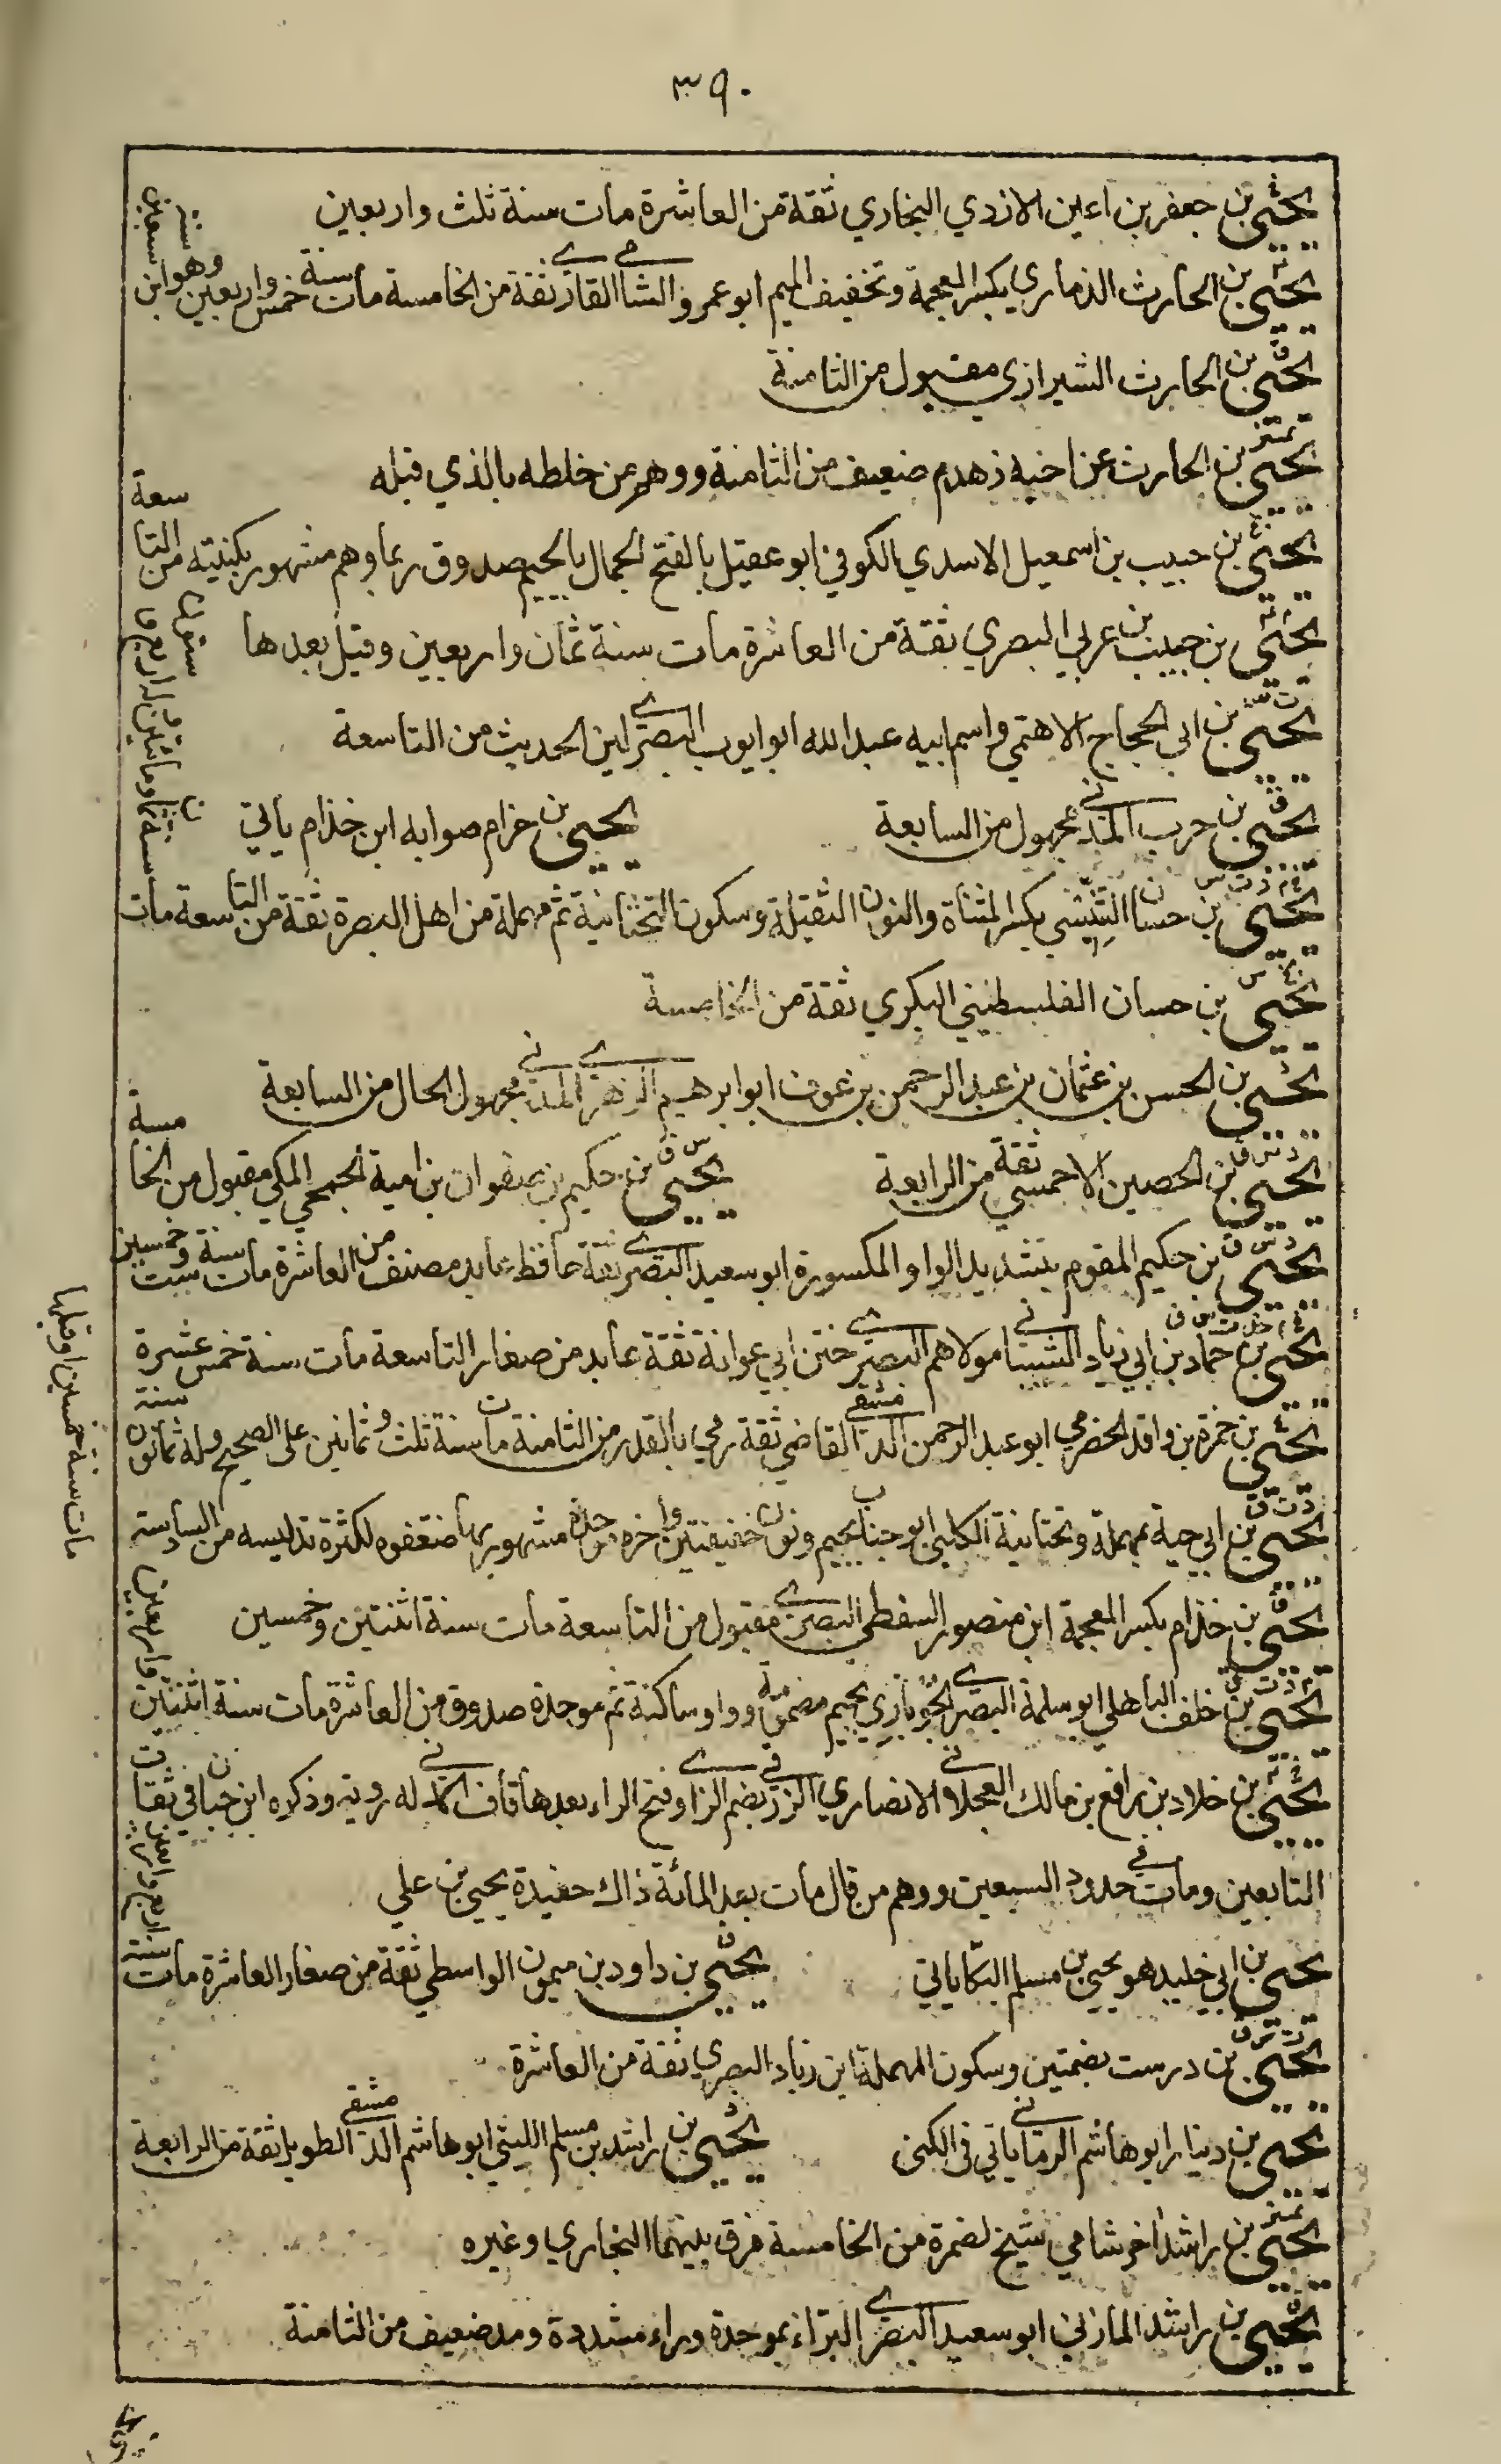 ٣٩٠
يحيى بن جعفر بن اعين الازدي البخاري ثقة من العاشرة مات سنة ثلث واربعين
يحيى بن الحارث الذماري بكسر المعجمة وتخفيف الميم ابو عمرو الشامي القاري ثقة من الخامسة مات سنة خمس واربعين وهو ابن سبعين سنة
يحيى بن الحارث الشيرازي مقبول من الثامنة
يحيى بن الحارث عن اخيه زهدم ضعيف من الثامنة ووهم من خلطه بالذي قبله
يحيى بن حبيب بن اسمعيل الاسدي الكوفي ابو عقيل بالفتح الجمال بالجيم صدوق ربما وهم مشهور بكنيته من التاسعة
يحيى بن حبيب بن عربي البصري ثقة من العاشرة مات سنة ثمان واربعين وقيل بعدها
يحيى بن ابي الحجاج الاهتمي واسم ابيه عبد الله ابو ايوب البصري لين الحديث من التاسعة
يحيى بن حرب المدني مجهول من السابعة يحيى بن حزام صوابه ابن خذام يأتي
يحيى بن حسان التنيسي بكسر المثناة والنون الثقيلة وسكون التحتانية ثم مهملة من اهل البصرة ثقة من التاسعة مات سنة ثمان ومائتين وله اربع وستون
يحيى بن حسان الفلسطيني البكري ثقة من الخامسة
يحيى بن الحسن بن عثمان بن عبد الرحمن بن عوف ابو ابرهيم الزهري المدني مجهول الحال من السابعة
يحيى بن الحصين الاحمسي ثقة من الرابعة يحيى بن حكيم بن صفوان بن امية الجمحي المكي مقبول من الخامسة
يحيى بن حكيم المقوم بتشديد الواو المكسورة ابو سعيد البصري ثقة حافظ عابد مصنف من العاشرة مات سنة ست وخمسين
يحيى بن حماد بن ابي زياد الشيباني مولاهم البصري ختن ابي عوانة ثقة عابد من صغار التاسعة مات سنة خمس عشرة
يحيى بن حمزة بن واقد الحضرمي ابو عبد الرحمن الدمشقي القاضي ثقة رمي بالقدر من الثامنة مات سنة ثلث وثمانين على الصحيح وله ثمانون سنة
يحيى بن ابي حية بمهملة وتحتانية الكلبي ابو جناب بجيم ونون خفيفتين واخره موحدة مشهور بها ضعفوه لكثرة تدليسه من السادسة مات سنة خمسين او قبلها
يحيى بن خذام بكسر المعجمة ابن منصور السقطي البصري مقبول من التاسعة مات سنة اثنتين وخمسين
يحيى بن خلف الباهلي ابو سلمة البصري الجوباري بجيم مضمومة وواو ساكنة ثم موحدة صدوق من العاشرة مات سنة اثنتين واربعين
يحيى بن خلاد بن رافع بن مالك العجلاني الانصاري الزرقي بضم الزاي وفتح الراء بعدها قاف المدني له روية وذكره ابن حبان في ثقات
التابعين ومات في حدود السبعين ووهم من قال مات بعد المائة ذاك حفيده يحيى بن علي
يحيى بن ابي خليد هو يحيى بن مسلم البكا يأتي يحيى بن داود بن ميمون الواسطي ثقة من صغار العاشرة مات سنة اربع واربعين
يحيى بن درست بضمتين وسكون المهملة ابن زياد البصري ثقة من العاشرة
يحيى بن دينار ابو هاشم الرماني يأتي في الكنى يحيى بن راشد بن مسلم الليثي ابو هاشم الدمشقي الطويل ثقة من الرابعة
يحيى بن راشد اخر شامي شيخ لضمرة من الخامسة فرق بينهما البخاري وغيره
يحيى بن راشد المازني ابو سعيد البصري البراء بموحدة وراء مشددة ومد ضعيف من الثامنة